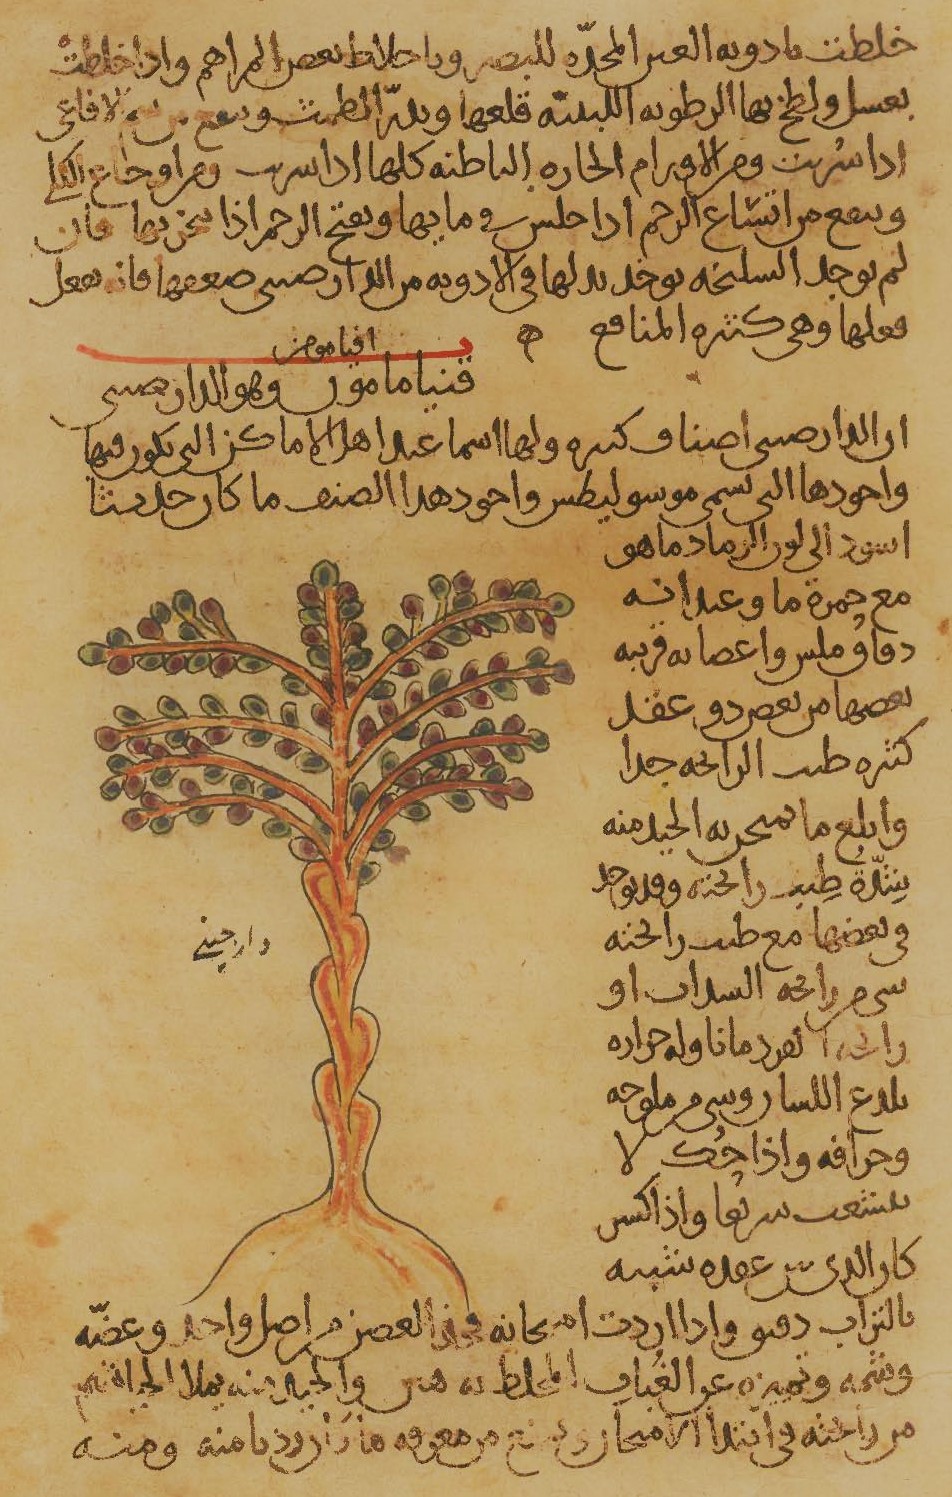 خلطت بادوية العين المحدّة للبصر وباخلاط بعض المراهم واذا خلطت
بعسل ولطخ بها الرطوبة اللبنية قلعها ويدرّ الطمث وينفع من سم الافاعي
اذا شربت ومن الاورام الحارة الباطنة كلها اذا شربت ومن اوجاع الكلي
وينفع من اتساع الرحم اذا جلس في مايها ويفتح الرحم اذا تبخر بها فان
لم يوجد السليخة يوخذ بدلها في الادوية من الدارصيني ضعفها فانه يفعل
فعلها وهي كثيره المنافع
اقيامومن
قنيامامون وهو الدارصيني
ان الدارصيني اصناف كثيره ولها اسما عند اهل الاماكن التي يكون فيها
واجودها التي تسمى موسوليطس واجود هذا الصنف ما كان حديثا
اسود الى لون الرماد ما هو
مع حمرة ما وعيدانه
دقاق ملس واغصانه قريبة
بعضها من بعض ذو عقد
كثيره طيب الرائحه جدا
وابلغ ما يمتحن به الجيد منه
شدّة طيب رائحته وقد يوجد
في بعضها مع طيب رائحته
شي من رائحة السداب او
رائحة القردمانا وله حراره
يلدع اللسان وشي من ملوحه
وحرافه واذا حُك لا
يتشعب سريعا واذا كسر
كان الذي بين عقده شبيه
دارچيني
بالتراب دقيق واذا اردت امتحانه فخذ الغصن من اصل واحد
وشمه وتميزه عن الفُتات المختلط به هين والجيد منه يملا الخياشيم
من رائحته في ابتدا الامتحان ويمنع من معرفة ما كان رديا منه ومنه